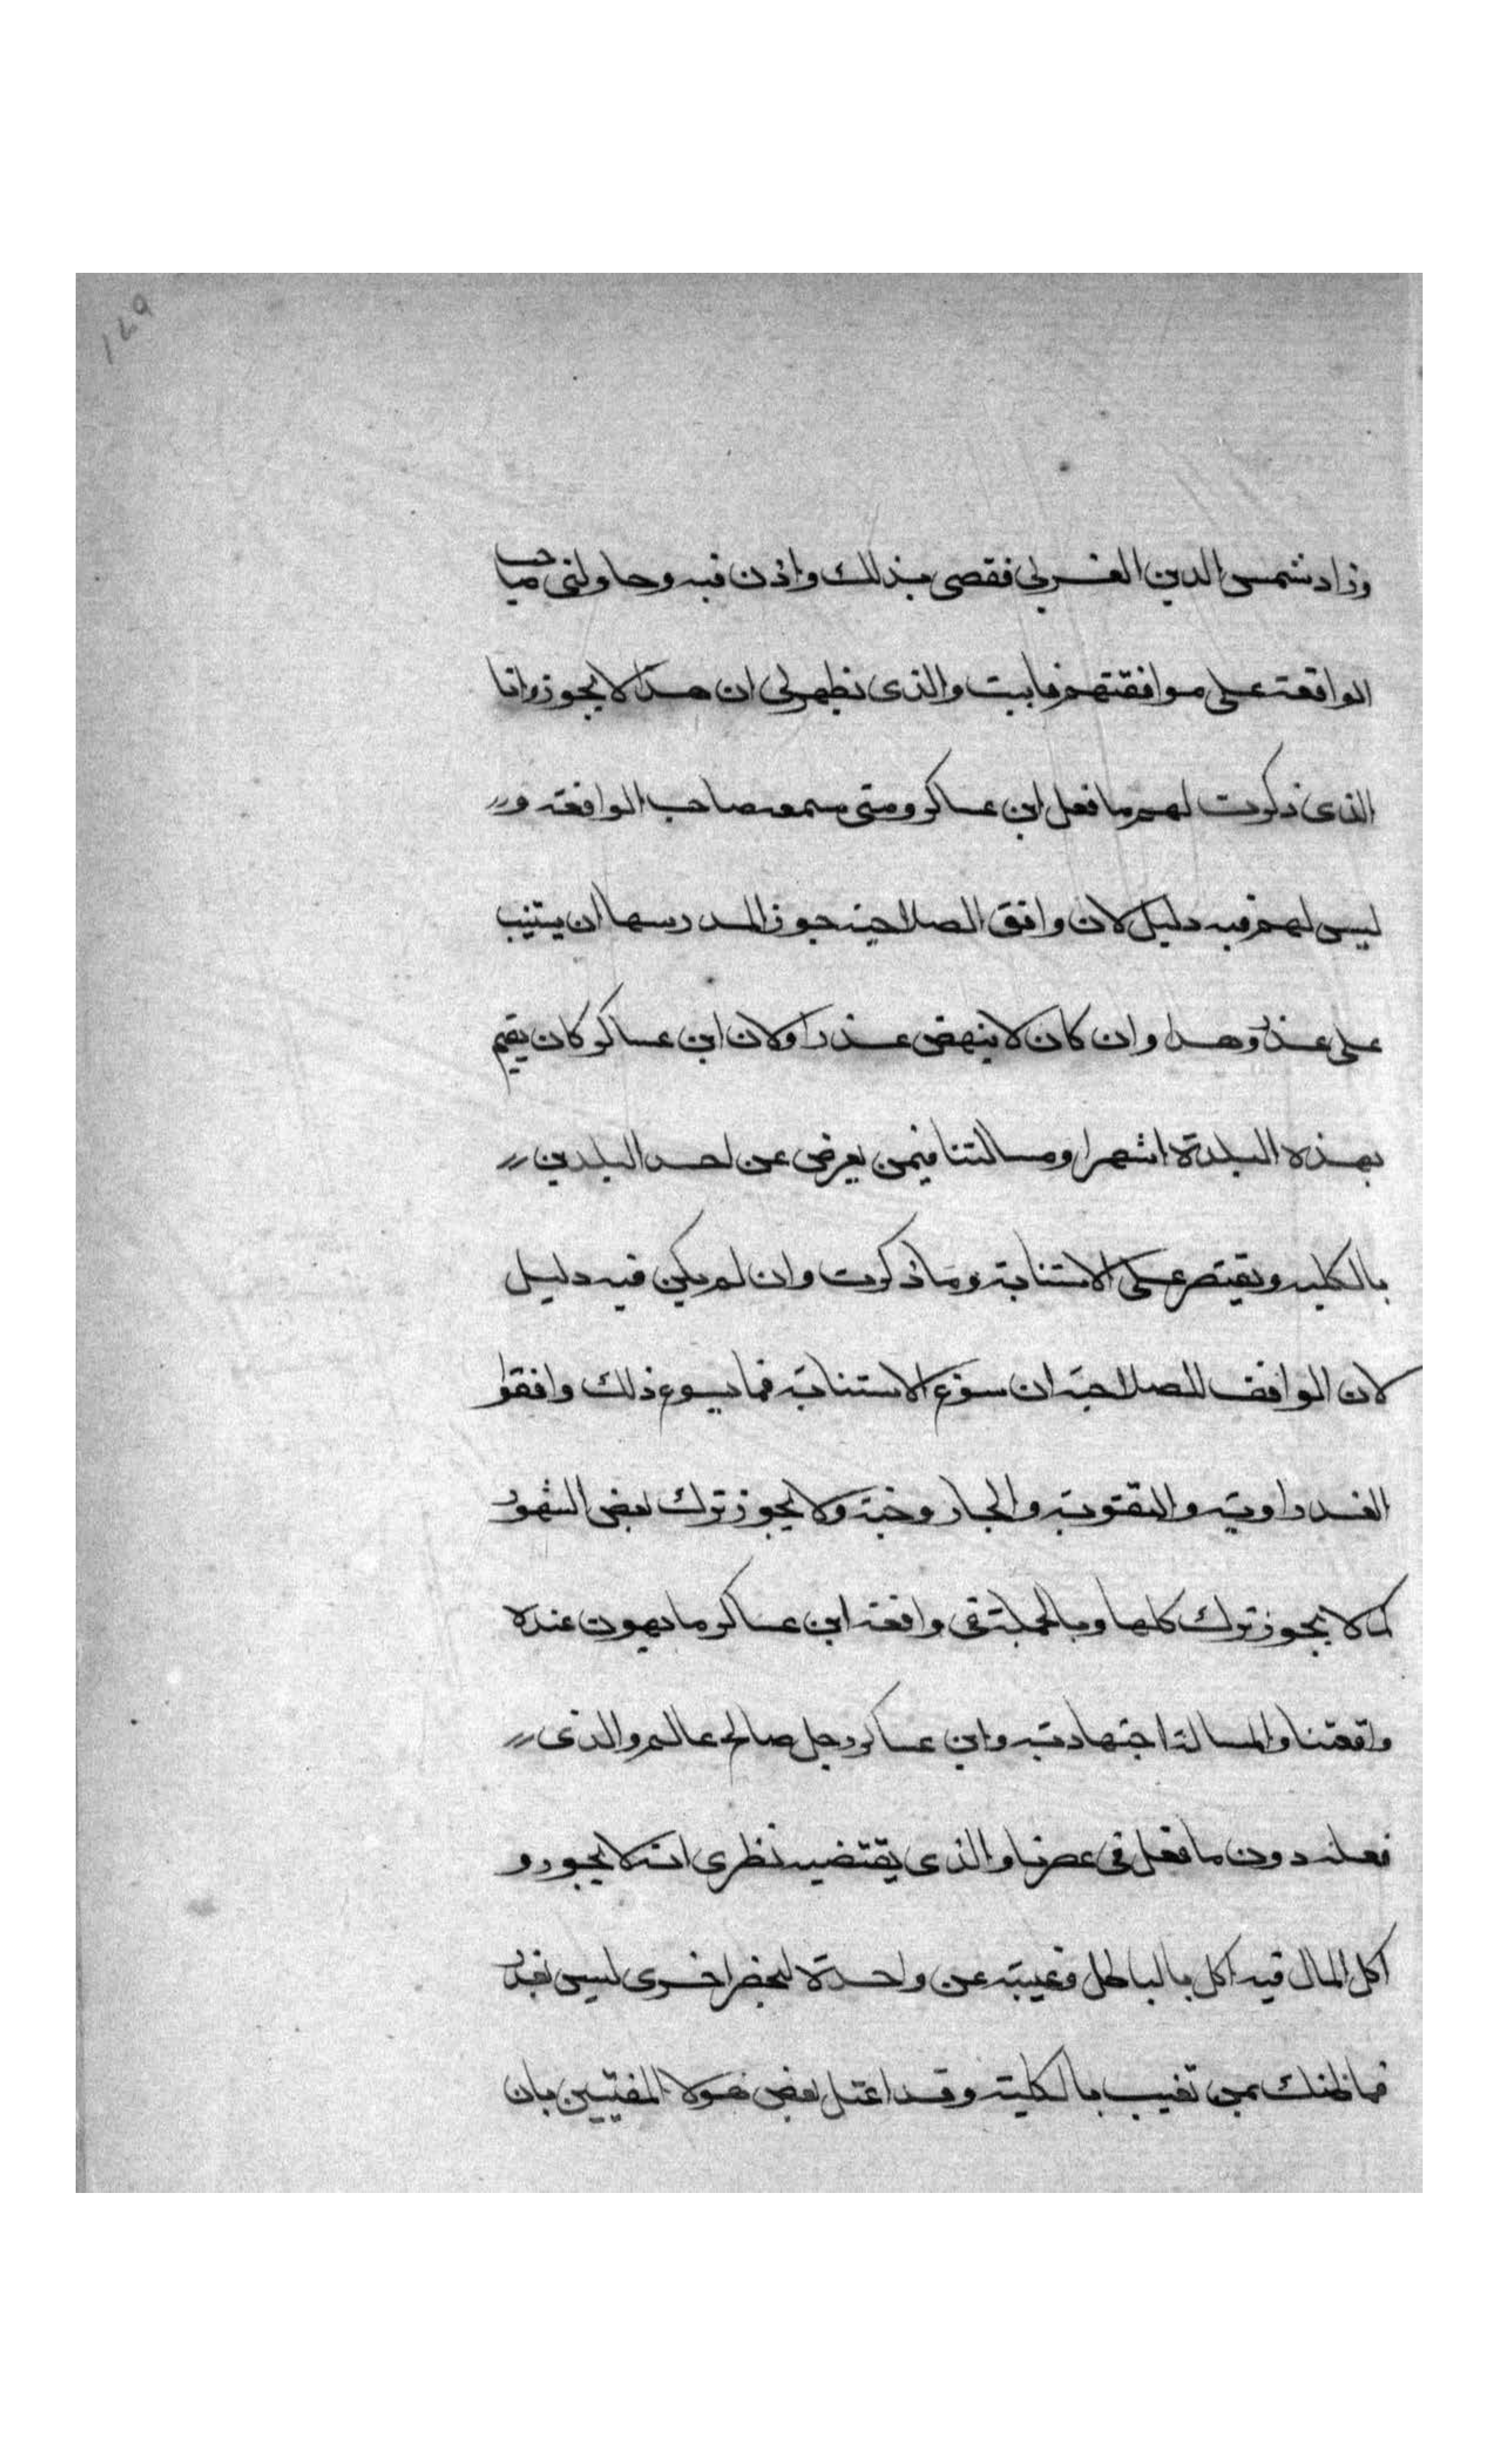 ١٤٩
وزاد شمس الدين الغزلي فقصى بذلك واذن فيه وحاولنى صاحب
الواقعة على موافقتهم فابيت والذى يظهر لى ان هذا لا يجوز وانا
الذى ذكرت لهم ما فعل ابن عساكر ومتى سمعه صاحب الواقعة و
ليس لهم فيه دليل لان واقف الصلاحية جوز المدرسها ان يستنيب
على عذر وهذا وان كان لا ينهض عذرا ولان ابن عساكر كان يقيم
بهذه البلدة اشهرا ومسالتنا فيمن يعرض عن احد البلدين
بالكليه ويقتصر على الاستنابة وما ذكرت وان لم يكن فيه دليل
لان الواقف للصلاحية ان سوغ الاستنابة فما يسوع ذلك وافقوا
الغدراوية والتقوية والجاروخية ولا يجوز ترك بعض الشهور
كما لا يجوز ترك كلها وبالجملة فى واقعة ابن عساكر ما يهون عنده
واقعتنا والمسالة اجتهادية وابن عساكر رجل صالح عالم والذى
فعله دون ما فعل فى عصرنا والذى يقتضيه نظرى انه لا يجوز و
اكل المال فيه اكل بالباطل وغيبته عن واحدة ليحضر اخرى ليس بعذر
فما ظنك بمن تغيب بالكلية وقد اعتل بعض هولا المفتيين بان